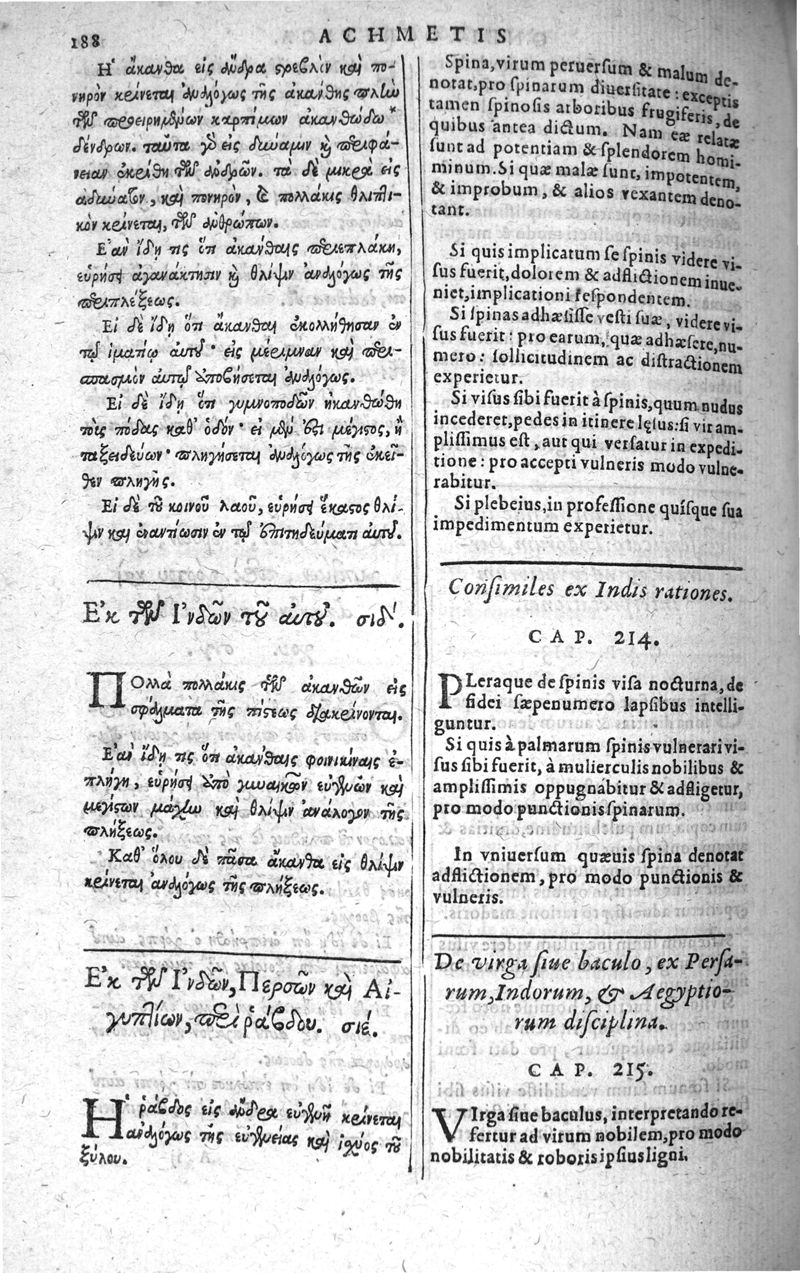 188
ACHMETIS
Ἡ ἄκανθα εἰς ἄνδρα στρεβλὸν καὶ πο-
νηρὸν κρίνεται ἀναλόγως τῆς ἀκάνθης πλὴν
τῶν προειρημένων καρπίμων ἀκανθωδῶν
δένδρων. ταῦτα γὸ εἰς δύναμιν καὶ περιφά-
νειαν ἐκρίθη τῶν ἀνδρῶν. τὰ δὲ μικρὰ εἰς
ἀδύνατον, καὶ πονηρὸν, καὶ πολλάκις θλιπτι-
κὸν κρίνεται, τῶν ἀνθρώπων.
Ἐὰν ἴδῃ τις ὅτι ἀκάνθαις περιεπλάκη,
εὑρήσει ἀγανάκτησιν καὶ θλίψιν ἀναλόγως τῆς
περιπλέξεως.
Εἰ δὲ ἴδῃ ὅτι ἄκανθαι ἐκολλήθησαν ἐν
τῷ ἱματίῳ αὐτοῦ· εἰς μέριμναν καὶ περι-
σπασμὸν αὐτῷ ἀποβήσεται ἀναλόγως.
Εἰ δὲ ἴδῃ ὅτι γυμνοποδῶν ἠκανθώθη
τοὺς πόδας καθ' ὁδόν· εἰ μὲν ἔστι μέγιστος, ἢ
ταξειδεύων· πληγήσεται ἀναλόγως τῆς ἐκεῖ-
θεν πληγῆς.
Εἰ δὲ τοῦ κοινοῦ λαοῦ, εὑρήσει ἕκαστος θλί-
ψιν καὶ ἐναντίωσιν ἐν τῷ ἐπιτηδεύματι αὐτοῦ.
Ἐκ τῶν Ἰνδῶν τοῦ αὐτοῦ. σιδ΄.
ΠΟλλὰ πολλάκις τῶν ἀκανθῶν εἰς
σφάλματα τῆς πίστεως διακρίνονται.
Ἐὰν ἴδῃ τις ὅτι ἀκάνθαις φοινικίναις ἐ-
πλήγη, εὑρήσει ἀπὸ γυναικῶν εὐγενῶν καὶ
μεγίστων μάχην καὶ θλίψιν ἀνάλογον τῆς
πλήξεως.
Καθ' ὅλου δὲ πᾶσα ἄκανθα εἰς θλίψιν
κρίνεται ἀναλόγως τῆς πλήξεως.
Ἐκ τῶν Ἰνδῶν, Περσῶν καὶ Αἰ-
γυπτίων, περὶ ῥάβδου. σιέ.
Ἡ ῥάβδος εἰς ἄνδρα εὐγενῆ κρίνεται
ἀναλόγως τῆς εὐγενείας καὶ ἰσχύος τοῦ
ξύλου.
Spina, virum peruersum & malum de-
notat, pro spinarum diuersitate: exceptis
tamen spinosis arboribus frugiferis, de
quibus antea dictum. Nam eæ relatæ
sunt ad potentiam & splendorem homi-
minum. Si quæ malæ sunt, impotentem,
& improbum, & alios vexantem deno-
tant.
Si quis implicatum se spinis videre vi-
sus fuerit, dolorem & adflictionem inue-
niet, implicationi respondentem.
Si spinas adhæsisse vesti suæ, videre vi-
sus fuerit: pro earum, quæ adhæsere, nu-
mero: sollicitudinem ac distractionem
experietur.
Si visus sibi fuerit à spinis, quum nudus
incederet, pedes in itinere lęsus: si vir am-
plissimus est, aut qui versatur in expedi-
tione: pro accepti vulneris modo vulne-
rabitur.
Si plebeius, in professione quisque sua
impedimentum experietur.
Consimiles ex Indis rationes.
CAP. 214.
PLeraque de spinis visa nocturna, de
fidei sæpenumero lapsibus intelli-
guntur.
Si quis à palmarum spinis vulnerari vi-
sus sibi fuerit, à mulierculis nobilibus &
amplissimis oppugnabitur & adfligetur,
pro modo punctionis spinarum.
In vniuersum quæuis spina denotat
adflictionem, pro modo punctionis &
vulneris.
De virga siue baculo, ex Persa-
rum, Indorum, & Aegyptio-
rum disciplina.
CAP. 215.
VIrga siue baculus, interpretando re-
fertur ad virum nobilem, pro modo
nobilitatis & roboris ipsius ligni.